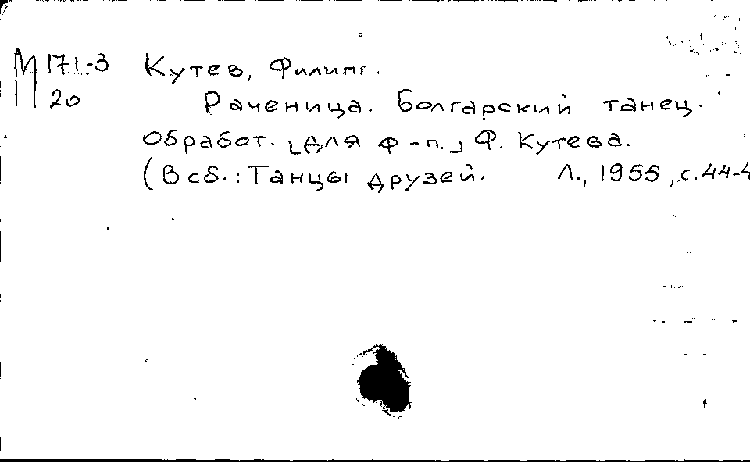 М 171-3 Кутев, Филипп.
20 Раченица. Болгарский танец.
Обработ. [для ф-п.] Ф. Кутева.
(В сб.: Танцы друзей. Л., 1955, с. 44-4